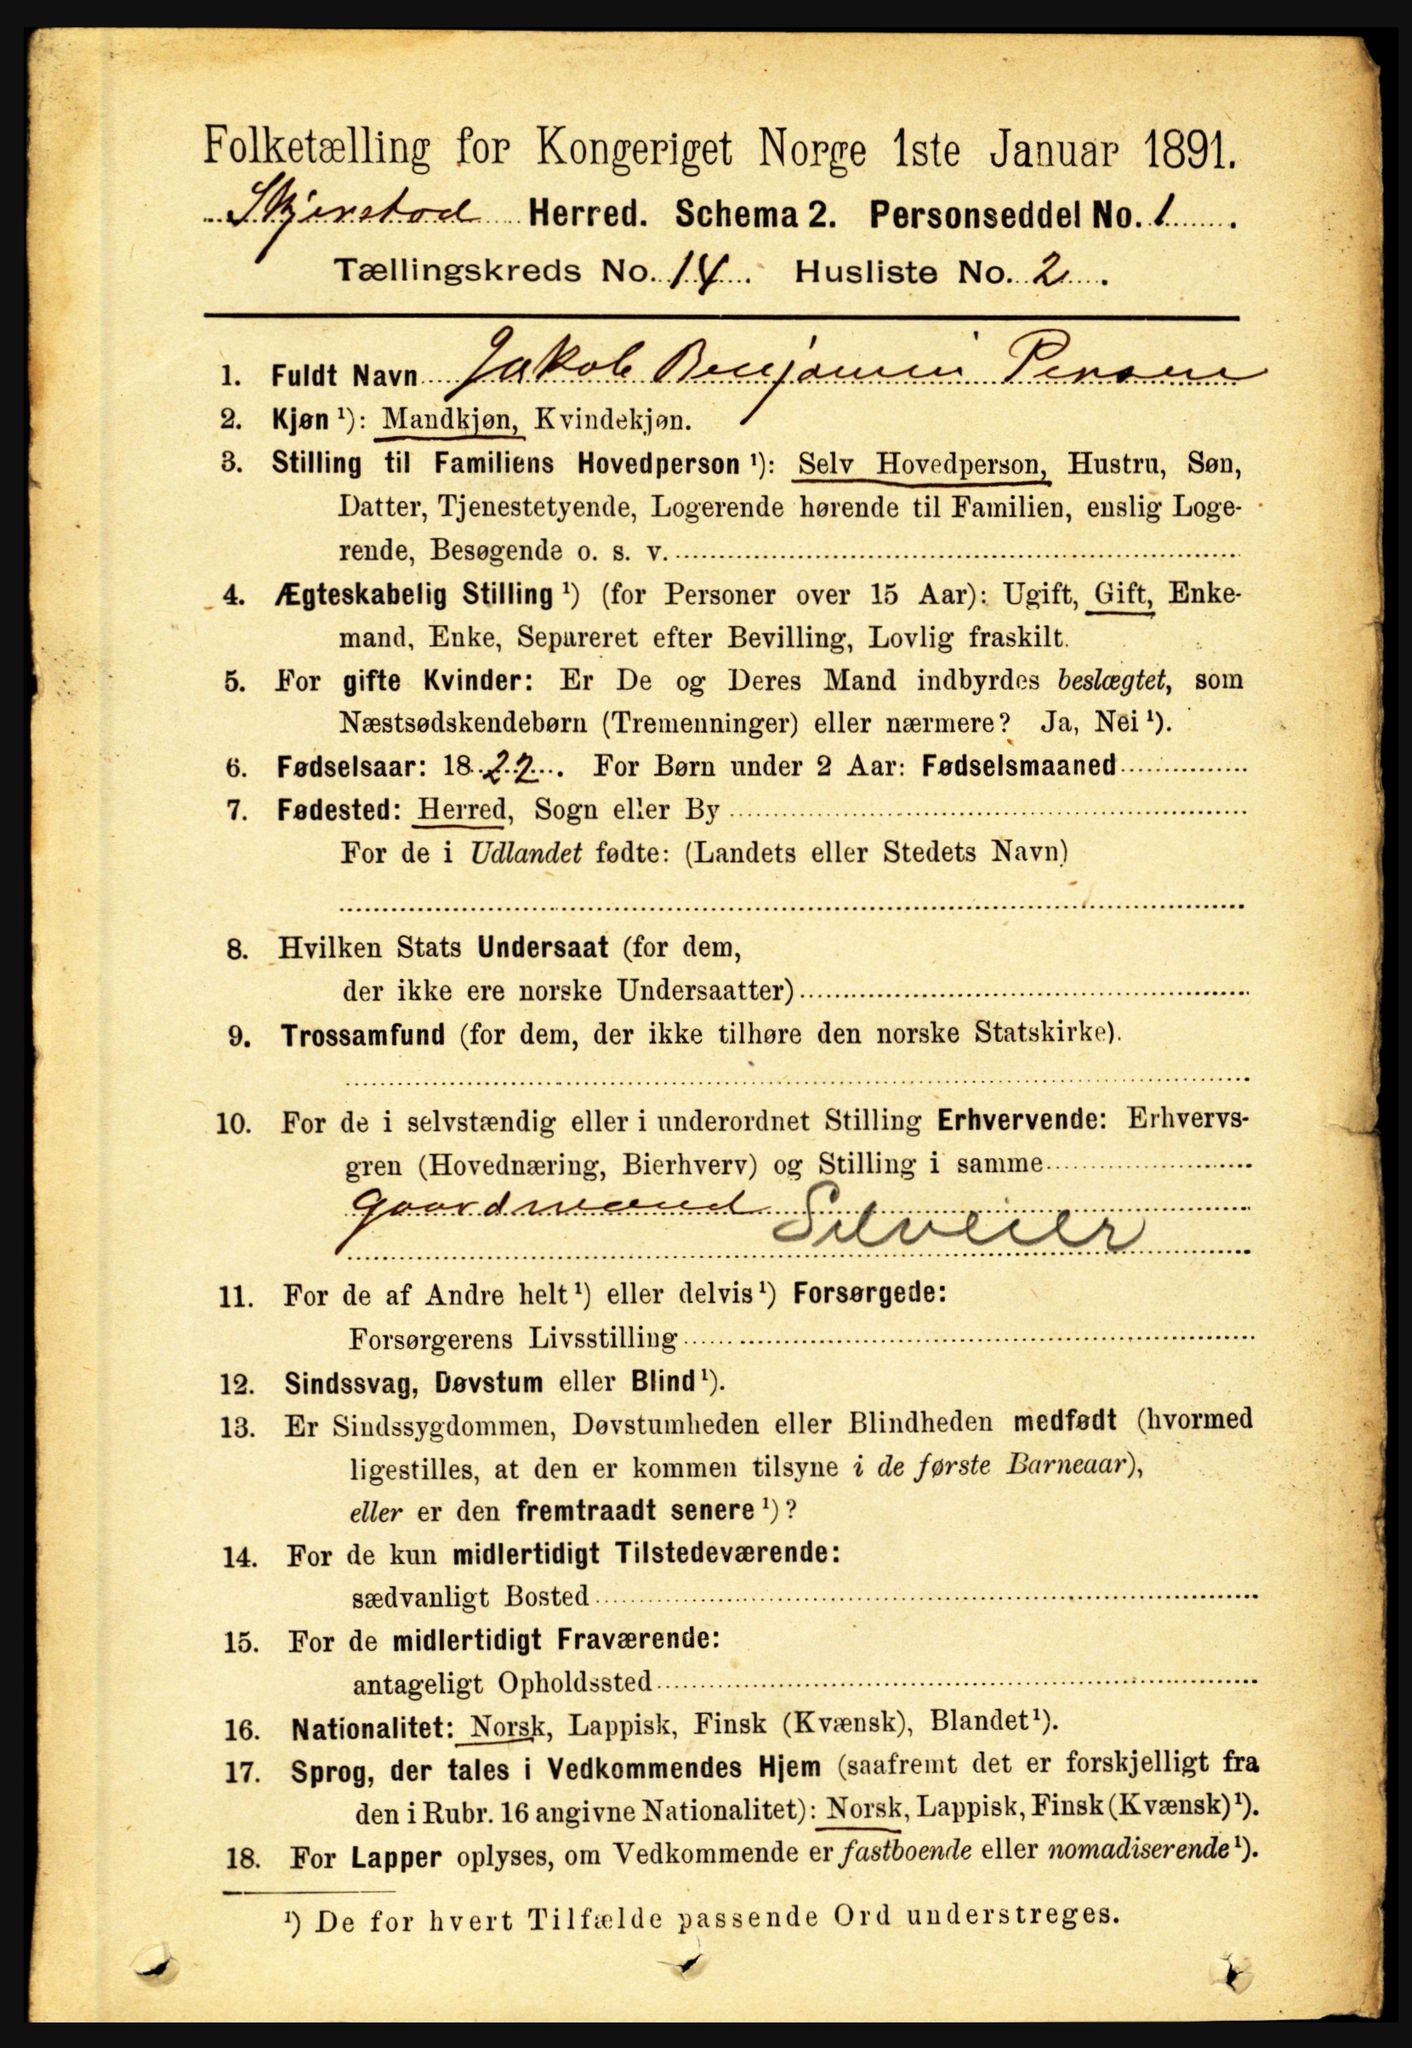 Folketælling for Kongeriget Norge 1ste Januar 1891.
Skjerstad Herred. Schema 2. Personseddel No. 1.
Tællingskreds No. 14. Husliste No. 2.
1. Fuldt Navn Jakob Benjamin Persen
2. Kjøn ¹): Mandkjøn, Kvindekjøn.
3. Stilling til Familiens Hovedperson ¹): Selv Hovedperson, Hustru, Søn,
Datter, Tjenestetyende, Logerende hørende til Familien, enslig Loge-
rende, Besøgende o. s. v.
4. Ægteskabelig Stilling ¹) (for Personer over 15 Aar): Ugift, Gift, Enke-
mand, Enke, Separeret efter Bevilling, Lovlig fraskilt.
5. For gifte Kvinder: Er De og Deres Mand indbyrdes beslægtet, som
Næstsødskendebørn (Tremenninger) eller nærmere? Ja, Nei ¹).
6. Fødselsaar: 1822. For Børn under 2 Aar: Fødselsmaaned
7. Fødested: Herred, Sogn eller By
For de i Udlandet fødte: (Landets eller Stedets Navn)
8. Hvilken Stats Undersaat (for dem,
der ikke ere norske Undersaatter)
9. Trossamfund (for dem, der ikke tilhøre den norske Statskirke).
10. For de i selvstændig eller i underordnet Stilling Erhvervende: Erhvervs-
gren (Hovednæring, Bierhverv) og Stilling i samme
gaardmand Selveier
11. For de af Andre helt ¹) eller delvis ¹) Forsørgede:
Forsørgerens Livsstilling
12. Sindssvag, Døvstum eller Blind ¹).
13. Er Sindssygdommen, Døvstumheden eller Blindheden medfødt (hvormed
ligestilles, at den er kommen tilsyne i de første Barneaar),
eller er den fremtraadt senere ¹)?
14. For de kun midlertidigt Tilstedeværende:
sædvanligt Bosted
15. For de midlertidigt Fraværende:
antageligt Opholdssted
16. Nationalitet: Norsk, Lappisk, Finsk (Kvænsk), Blandet ¹).
17. Sprog, der tales i Vedkommendes Hjem (saafremt det er forskjelligt fra
den i Rubr. 16 angivne Nationalitet): Norsk, Lappisk, Finsk (Kvænsk) ¹).
18. For Lapper oplyses, om Vedkommende er fastboende eller nomadiserende ¹).
¹) De for hvert Tilfælde passende Ord understreges.